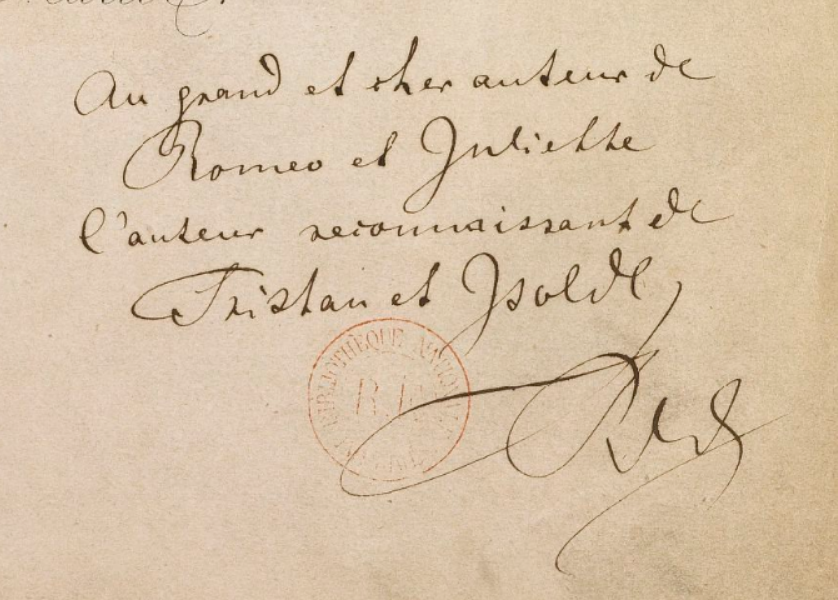 Au grand et cher auteur de
Romeo et Juliette
l'auteur reconnaissant de
Tristan et Isolde,
BIBLIOTHEQUE NATIONALE
R.F.